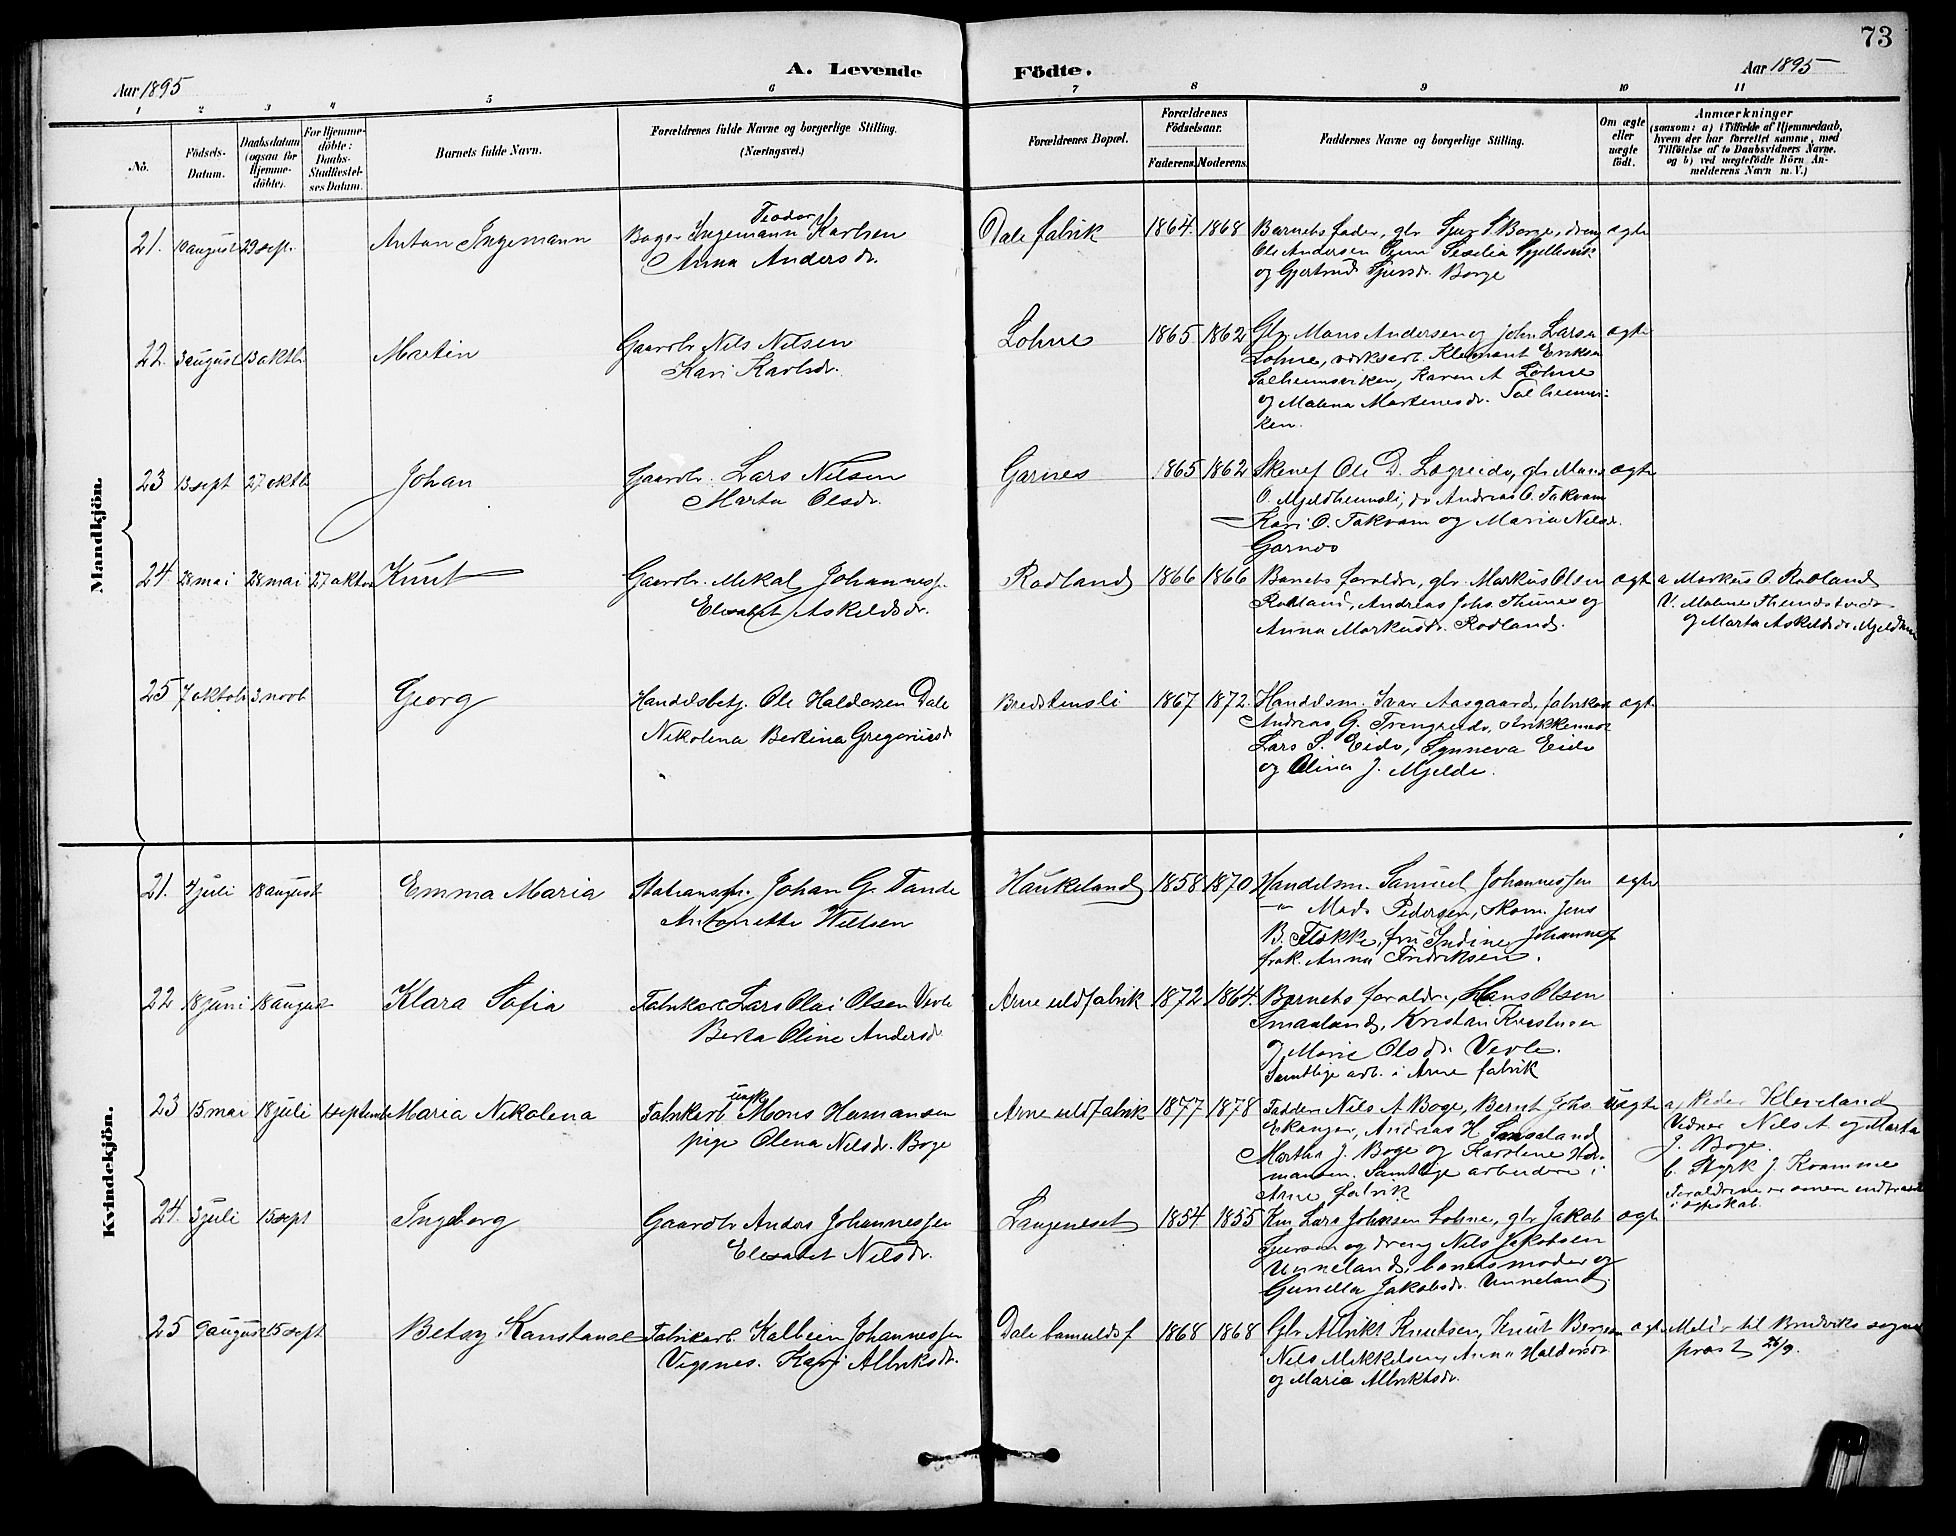 73
A. Levende Födte.
Aar 1895
Aar 1895
1 2 3 4 5 6 7 8 9 10 11
No.
Födsels-Datum.
Daabsdatum (ogsaa for Hjemmedöbte).
For Hjemmedöbte: Daabs-Stadfæstelses Datum.
Barnets fulde Navn.
Forældrenes fulde Navne og borgerlige Stilling.
(Næringsvei.)
Forældrenes Bopæl.
Forældrenes Födselsaar.
Faderens. Moderens.
Faddernes Navne og borgerlige Stilling.
Om ægte eller uægte födt.
Anmærkninger
(saasom: a) i Tilfælde af Hjemmedaab,
hvem der har forrettet samme, med
Tilföielse af to Daabsvidners Navne,
og b) ved uægtefödte Börn An-
melderens Navn m. V.)
Mandkjön.
21. 10 august 29 sept. Anton Ingemann
Teodor
Bager Ingemann Karlsen
Anna Andersdr.
Dale fabrik 1864. 1868
Barnets fader, gbr Sjur S. Borge, dreng
Ole Andersen
og Gjertrud Sjursdr. Borge
ægte
22. 3 august 13 oktb Martin
Gaardbr Nils Nilsen
Kari Karlsdr.
Lohne 1865 1862
Gbr. Mons Andersen og John Larsen
Lohne, verksarb. Klemant Eriksen
Solheimsviken, Karen A Lohne
og Malena Martenesdr. Solheimsvi-
ken.
ægte
23 13 sept 27 oktb Johan
Gaardbr. Lars Nilsen
Marta Olsdr.
Garnes 1865 1862
Ole D. Lægreid, gbr Mons
O. Mjeldheimsli, do Andreas O. Takvam
Kari O. Takvam og Maria Nilsdr.
Garnes
ægte
24. 28 mai 28 mai 27 oktbr Knut
Gaardbr. Mikal Johannessen
Elisabet Askeldsdr.
Rodland 1866 1866
Barnets foraldre, gbr. Markus Olsen
Rodland, Andreas Johs. Thunes og
Anna Markusdr. Rodland.
ægte
a Markus O. Rodland
V. Malene
og Marta Askeldsdr Mjeldheim
25 7 oktob 3 novb Georg
Handelsbetj. Ole Haldorsen Dale
Nikolina Bertina Gregoriusdr
Bredstensli 1867 1872.
Handelsm. Ivar Aasgaard, fabrikarb
Andreas G. Trengereid,
Lars S. Eide, Synneva Eide
og Olina J. Mjelde.
ægte
Kvindekjön.
21. 4 juli 18 august Emma Maria
Johan G. Tande
Antonette Wiltsen
Haukeland 1858 1870
Handelsm. Samuel Johannessen
-"- Mads Pedersen, Skom. Jens
B. Flokke, fru Indine Johannes
frøk. Anna Fredriksen.
ægte
22 18 juni 18 august Klara Sofia
Fabrikarb Lars Olai Olsen Vevle
Berta Oline Andersdr
Arne uldfabrik 1872 1864.
Barnets foraldre, Hans Olsen
Smaaland, Kristian Kristensen
og Marie Olsdr. Vevle.
Samtlige arb. i Arne fabrik
23 15 mai 18 juli 1 septemb Maria Nikolena
ungk
Fabrikarb Mons Hamansen
pige Olena Nilsdr. Boge
Arne uldfabrik 1877 1878
Fadder Nils A Boge, Bernt Johs.
Ekanger, Andreas H. Smaaland
Martha J. Boge og Karoline Her-
mansen. Samtlige arbeidere i
Arne fabrik
uægte
a, Peder Kleveland
Vidner Nils A og Marta
J. Boge
b. Styrk J. Kvamme
24. 3 juli 15 sept Ingeborg
Gaardbr Anders Johannessen
Elisabet Nilsdr.
Langeneset 1854 1855
Lars Johnsen Lohne, gbr Jakob
Sjursen og dreng Nils Jakobsen
Unneland, barnets moder og
Gunilla Jakobsdr. Unneland.
ægte
25 9 august 15 sept Betsy Konstanse
Fabrikarb. Kolbein Johannessen
Vigsnes. Kari Albriktsdr.
Dale bomuldsf 1868 1868
Gbr Albrikt Knutsen, Knut Bergesen
Nils Mikkelsen, Anna Haldorsdr
og Maria Albriktsdr.
ægte
Meldt til Bruviks sogne-
prest 26/9.